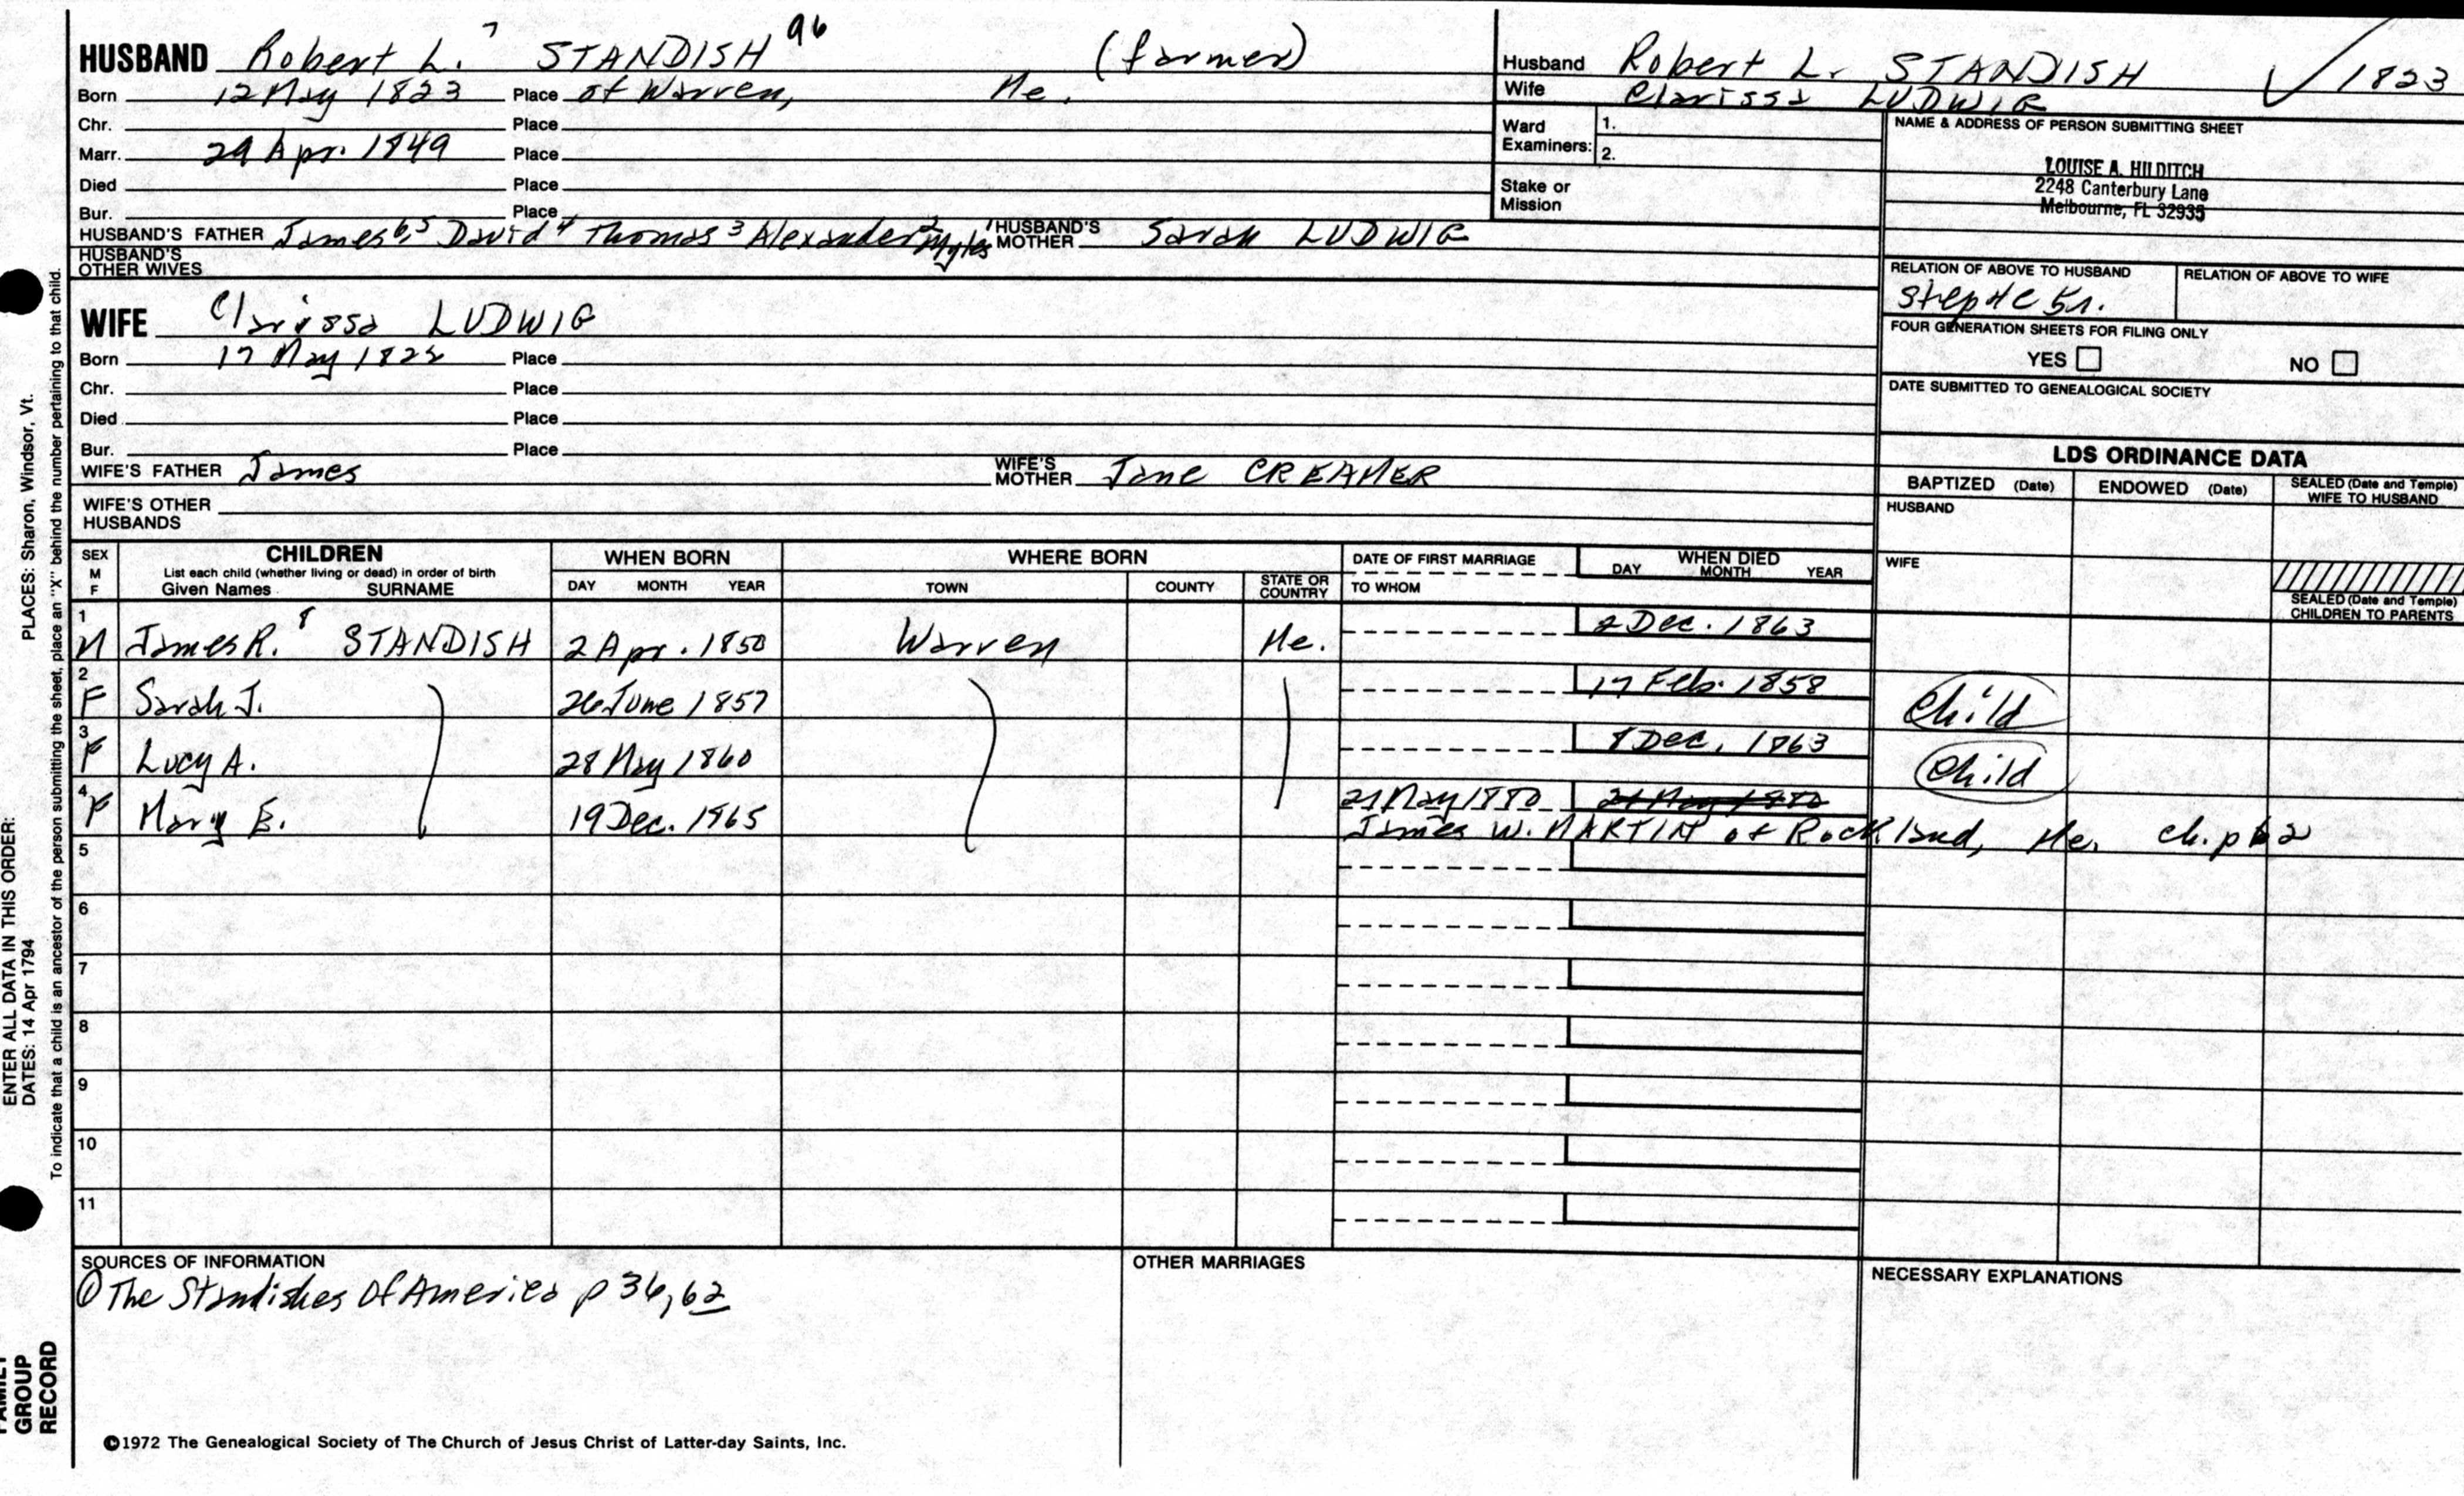 HUSBAND Robert L. 7 STANDISH 96 (farmer)
Born 12 May 1823 Place of Warren, Me.
Chr. Place
Marr. 29 Apr. 1849 Place
Died Place
Bur. Place
HUSBAND'S FATHER James 6,5 David 4 Thomas 3 Alexander 2 Myles 1 HUSBAND'S MOTHER Sarah LUDWIG
HUSBAND'S OTHER WIVES
Husband Robert L. STANDISH 1823
Wife Clarissa LUDWIG
Ward Examiners: 1.
2.
Stake or Mission
NAME & ADDRESS OF PERSON SUBMITTING SHEET
LOUISE A. HILDITCH
2248 Canterbury Lane
Melbourne, FL 32935
RELATION OF ABOVE TO HUSBAND
RELATION OF ABOVE TO WIFE
FOUR GENERATION SHEETS FOR FILING ONLY
YES NO
DATE SUBMITTED TO GENEALOGICAL SOCIETY
WIFE Clarissa LUDWIG
Born 17 May 1822 Place
Chr. Place
Died Place
Bur. Place
WIFE'S FATHER James WIFE'S MOTHER Jane CREAMER
WIFE'S OTHER HUSBANDS
LDS ORDINANCE DATA
BAPTIZED (Date) ENDOWED (Date) SEALED (Date and Temple) WIFE TO HUSBAND
HUSBAND
WIFE
SEALED (Date and Temple) CHILDREN TO PARENTS
SEX M F
CHILDREN
List each child (whether living or dead) in order of birth
Given Names SURNAME
WHEN BORN
DAY MONTH YEAR
WHERE BORN
TOWN COUNTY STATE OR COUNTRY
DATE OF FIRST MARRIAGE
TO WHOM
WHEN DIED
DAY MONTH YEAR
1 M James R. 8 STANDISH 2 Apr. 1850 Warren Me. 2 Dec. 1863
2 F Sarah J. 26 June 1857 17 Feb. 1858 Child
3 F Lucy A. 28 May 1860 8 Dec. 1863 Child
4 F Mary E. 19 Dec. 1865 21 May 1880 21 May 1880
James W. MARTIN of Rockland, Me. ch. p 62
5
6
7
8
9
10
11
SOURCES OF INFORMATION
① The Standishes Of America p 36, 62
OTHER MARRIAGES
NECESSARY EXPLANATIONS
©1972 The Genealogical Society of The Church of Jesus Christ of Latter-day Saints, Inc.
ENTER ALL DATA IN THIS ORDER:
DATES: 14 Apr 1794
PLACES: Sharon, Windsor, Vt.
To indicate that a child is an ancestor of the person submitting the sheet, place an "X" behind the number pertaining to that child.
FAMILY
GROUP
RECORD